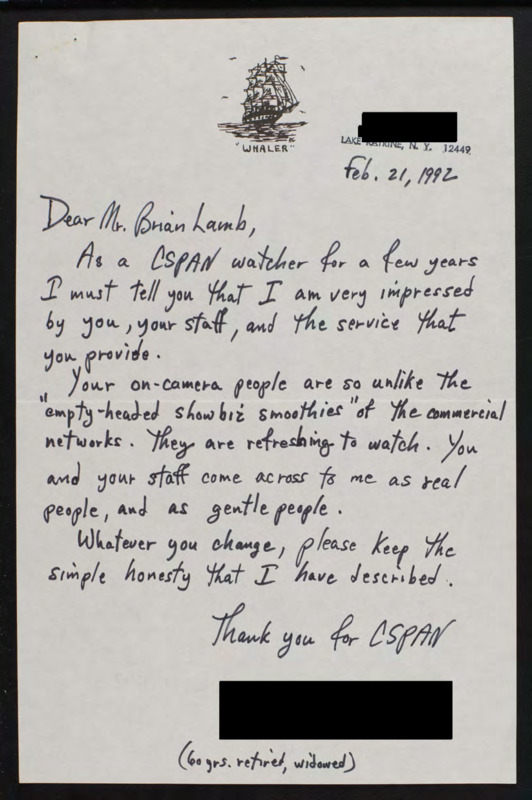 "WHALER"
LAKE KATRINE, N. Y. 12449
Feb. 21, 1992
Dear Mr. Brian Lamb,
As a CSPAN watcher for a few years
I must tell you that I am very impressed
by you, your staff, and the service that
you provide.
Your on-camera people are so unlike the
"empty-headed showbiz smoothies" of the commercial
networks. They are refreshing to watch. You
and your staff come across to me as real
people, and as gentle people.
Whatever you change, please keep the
simple honesty that I have described.
Thank you for CSPAN
(60 yrs. retired, widowed)